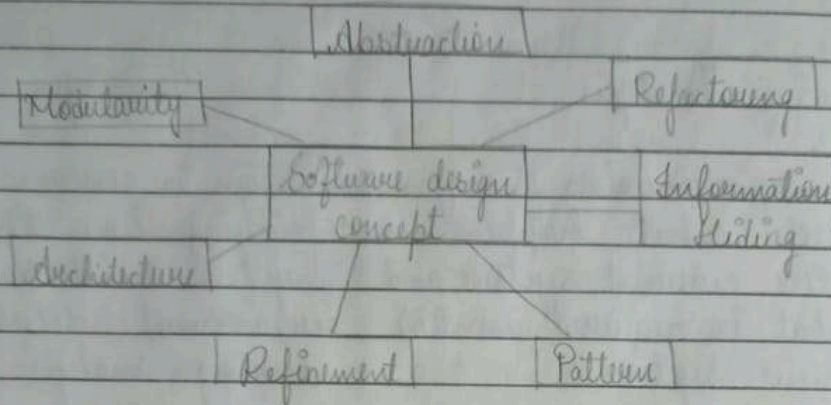 Abstraction
Modularity
Refactoring
Software design
concept
Information
Hiding
Architecture
Refinement
Pattern